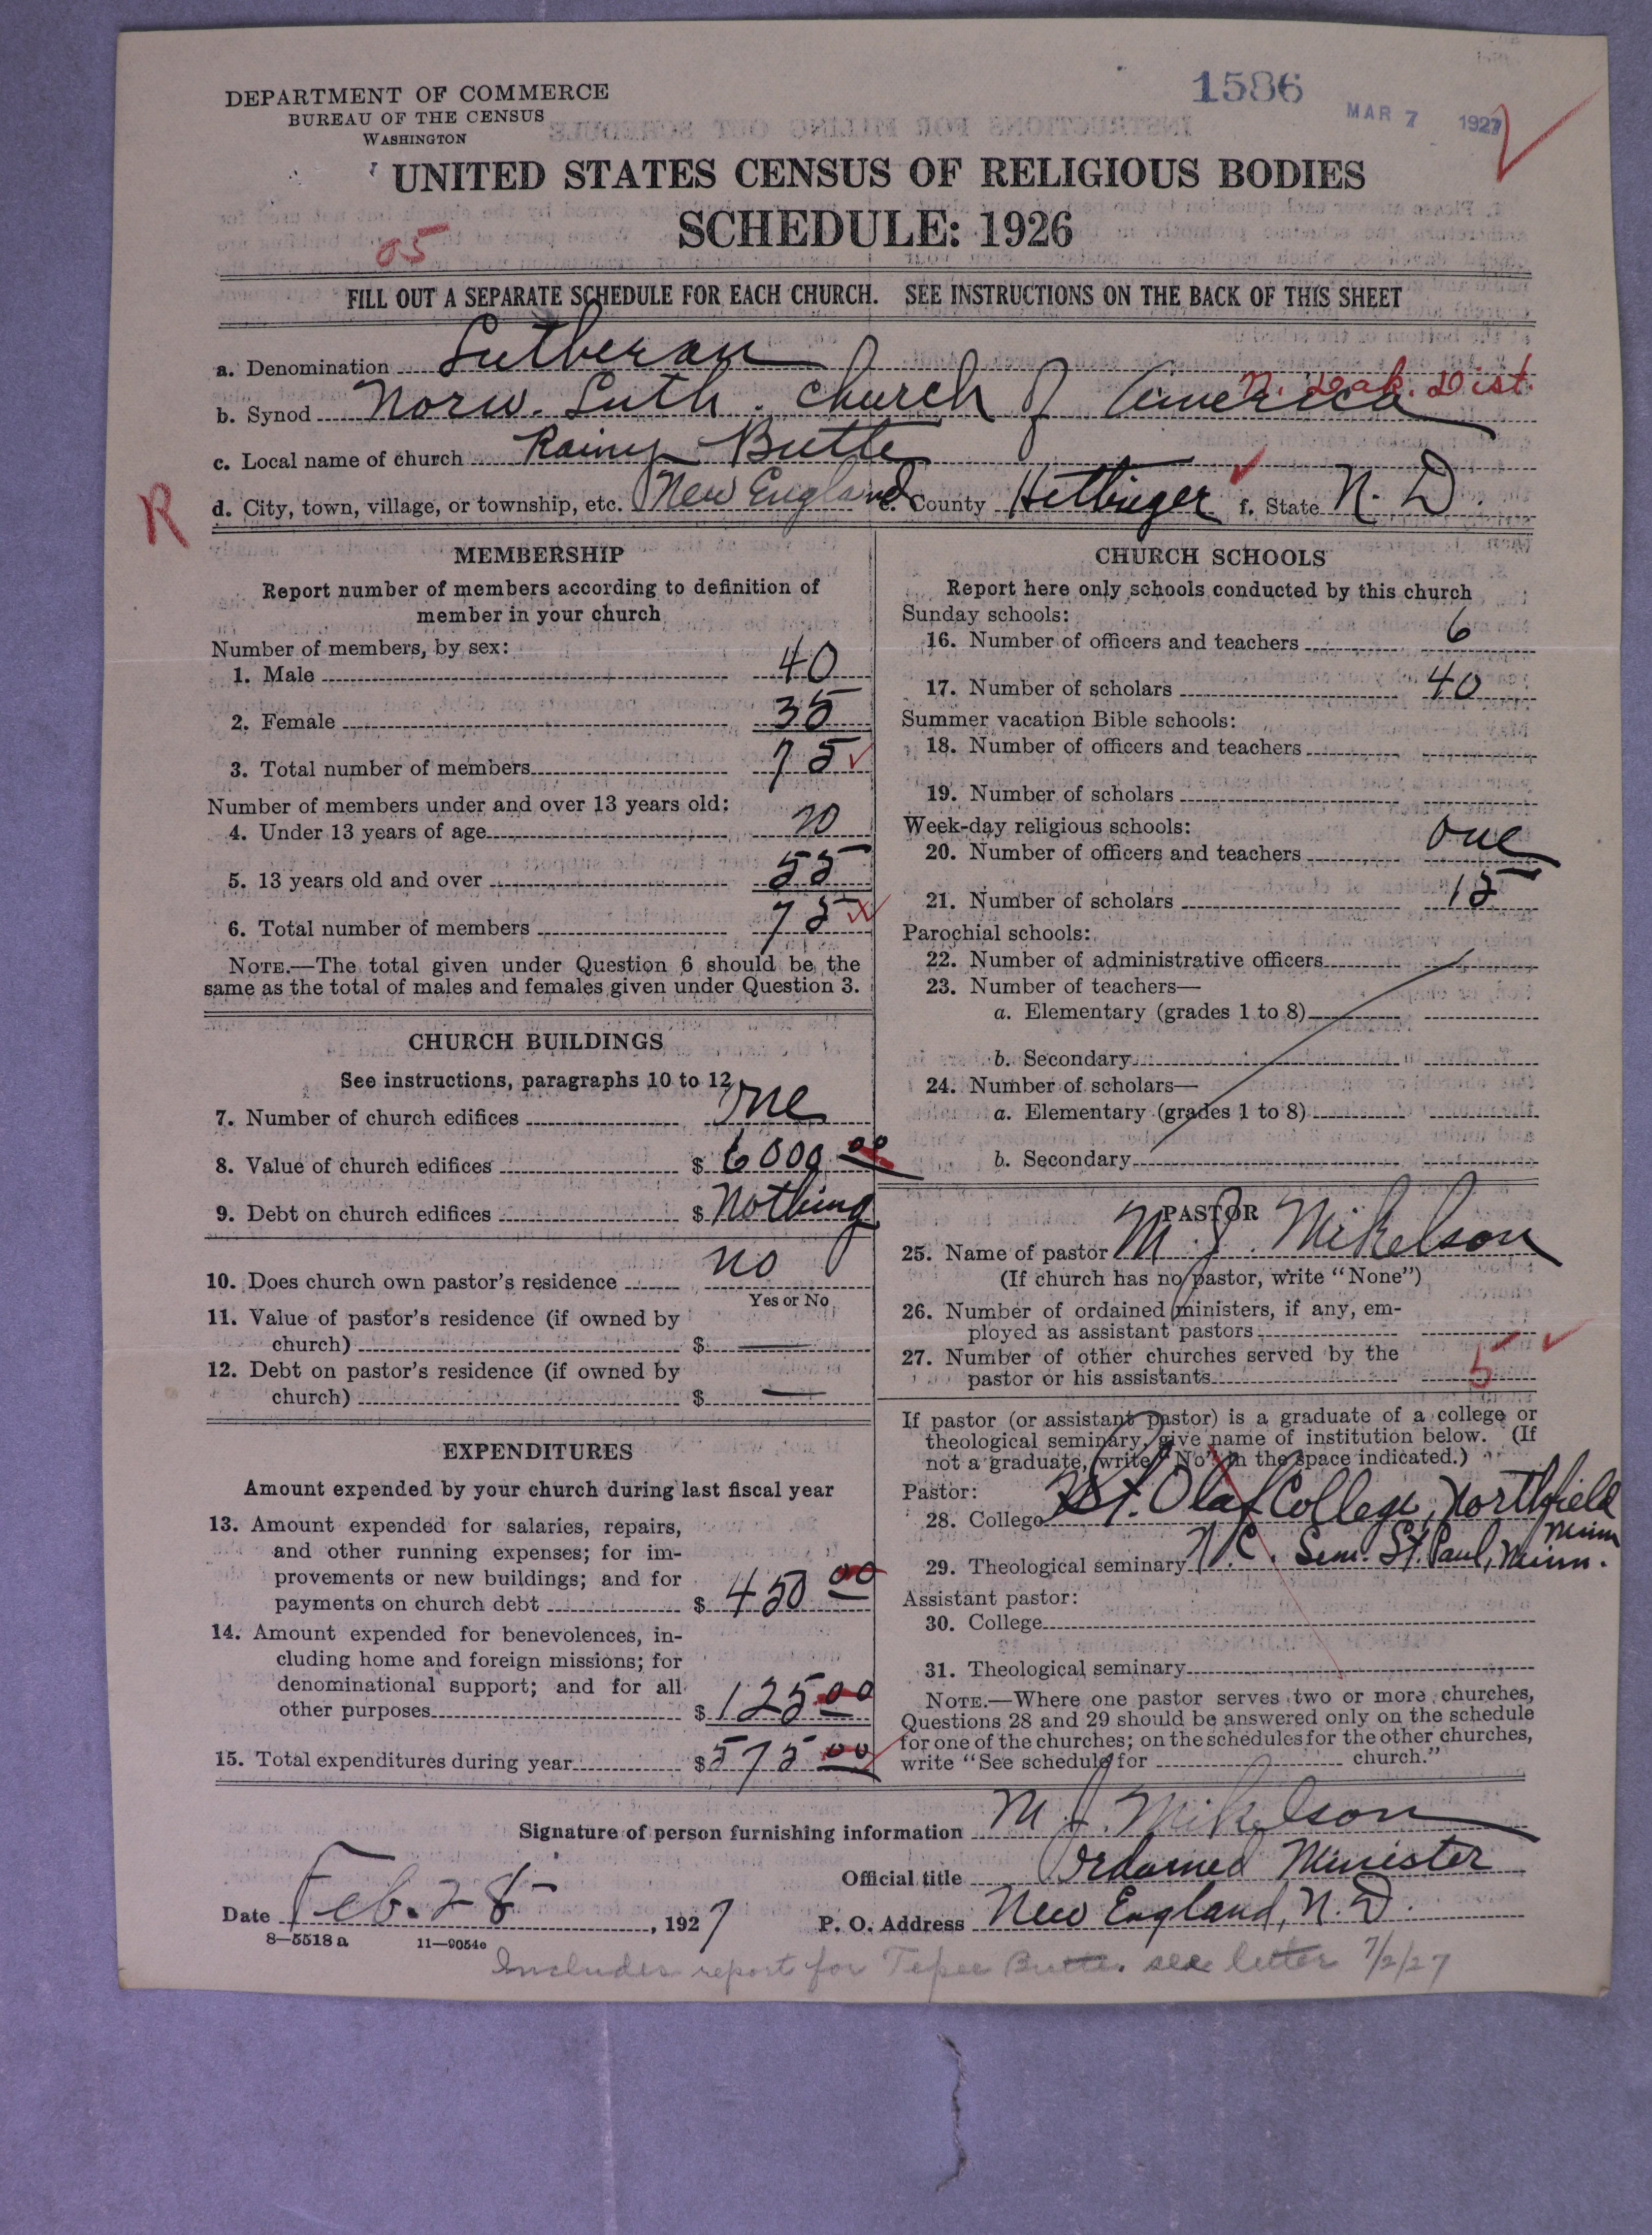 1586
MAR 7 1927
DEPARTMENT OF COMMERCE
BUREAU OF THE CENSUS
WASHINGTON
UNITED STATES CENSUS OF RELIGIOUS BODIES
SCHEDULE: 1926
05
FILL OUT A SEPARATE SCHEDULE FOR EACH CHURCH. SEE INSTRUCTIONS ON THE BACK OF THIS SHEET
a. Denomination Lutheran
N. Dak. Dist.
b. Synod Norw. Luth. Church of America
c. Local name of church Rainy Butte
R
d. City, town, village, or township, etc. New England e. County Hettinger f. State N. D.
MEMBERSHIP
Report number of members according to definition of
member in your church
Number of members, by sex:
1. Male 40
2. Female 35
3. Total number of members 75
Number of members under and over 13 years old:
4. Under 13 years of age 20
5. 13 years old and over 55
6. Total number of members 75
NOTE.—The total given under Question 6 should be the
same as the total of males and females given under Question 3.
CHURCH BUILDINGS
See instructions, paragraphs 10 to 12
7. Number of church edifices one
8. Value of church edifices $ 6000 00
9. Debt on church edifices $ Nothing
10. Does church own pastor's residence no
Yes or No
11. Value of pastor's residence (if owned by
church) $ —
12. Debt on pastor's residence (if owned by
church) $ —
EXPENDITURES
Amount expended by your church during last fiscal year
13. Amount expended for salaries, repairs,
and other running expenses; for im-
provements or new buildings; and for
payments on church debt $ 450 00
14. Amount expended for benevolences, in-
cluding home and foreign missions; for
denominational support; and for all
other purposes $ 125 00
15. Total expenditures during year $ 575 00
CHURCH SCHOOLS
Report here only schools conducted by this church
Sunday schools:
16. Number of officers and teachers 6
17. Number of scholars 40
Summer vacation Bible schools:
18. Number of officers and teachers
19. Number of scholars
Week-day religious schools:
20. Number of officers and teachers one
21. Number of scholars 15
Parochial schools:
22. Number of administrative officers
23. Number of teachers—
a. Elementary (grades 1 to 8)
b. Secondary
24. Number of scholars—
a. Elementary (grades 1 to 8)
b. Secondary
PASTOR
25. Name of pastor M. J. Mikelson
(If church has no pastor, write "None")
26. Number of ordained ministers, if any, em-
ployed as assistant pastors
27. Number of other churches served by the
pastor or his assistants 5
If pastor (or assistant pastor) is a graduate of a college or
theological seminary, give name of institution below. (If
not a graduate, write "No" in the space indicated.)
Pastor:
28. College St. Olaf College, Northfield
Minn
29. Theological seminary Sem. St. Paul, Minn.
Assistant pastor:
30. College
31. Theological seminary
NOTE.—Where one pastor serves two or more churches,
Questions 28 and 29 should be answered only on the schedule
for one of the churches; on the schedules for the other churches,
write "See schedule for church."
Signature of person furnishing information M. J. Mikelson
Official title Ordained Minister
Date Feb. 28, 1927 P. O. Address New England, N. D.
8—5518 a 11—9054c
Includes report for Tepee Butte. see letter 7/2/27